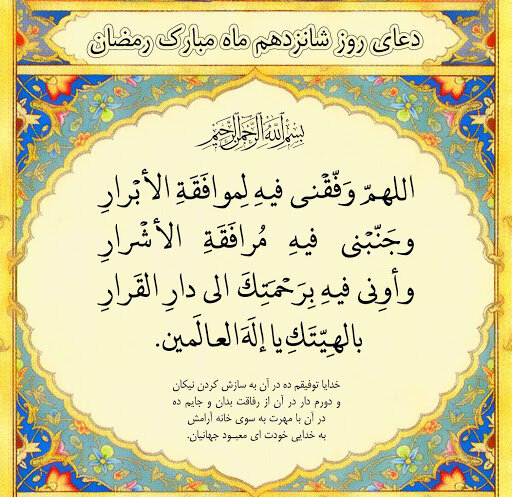 دعای روز شانزدهم ماه مبارک رمضان
بِسْمِ اللَّهِ الرَّحْمَٰنِ الرَّحِيمِ
اللهمّ وَفّقْنی فیهِ لِموافَقَةِ الأبْرارِ
وجَنّبْنی فیهِ مُرافَقَةِ الأشْرارِ
وأونِی فیهِ بِرَحْمَتِكَ الی دارِ القَرارِ
بالهِیّتَكِ یا إلَهَ العالَمین.
خدایا توفیقم ده در آن به سازش کردن نیکان
و دورم دار در آن از رفاقت بدان و جایم ده
در آن با مهرت به سوی خانه آرامش
به خدایی خودت ای معبود جهانیان.